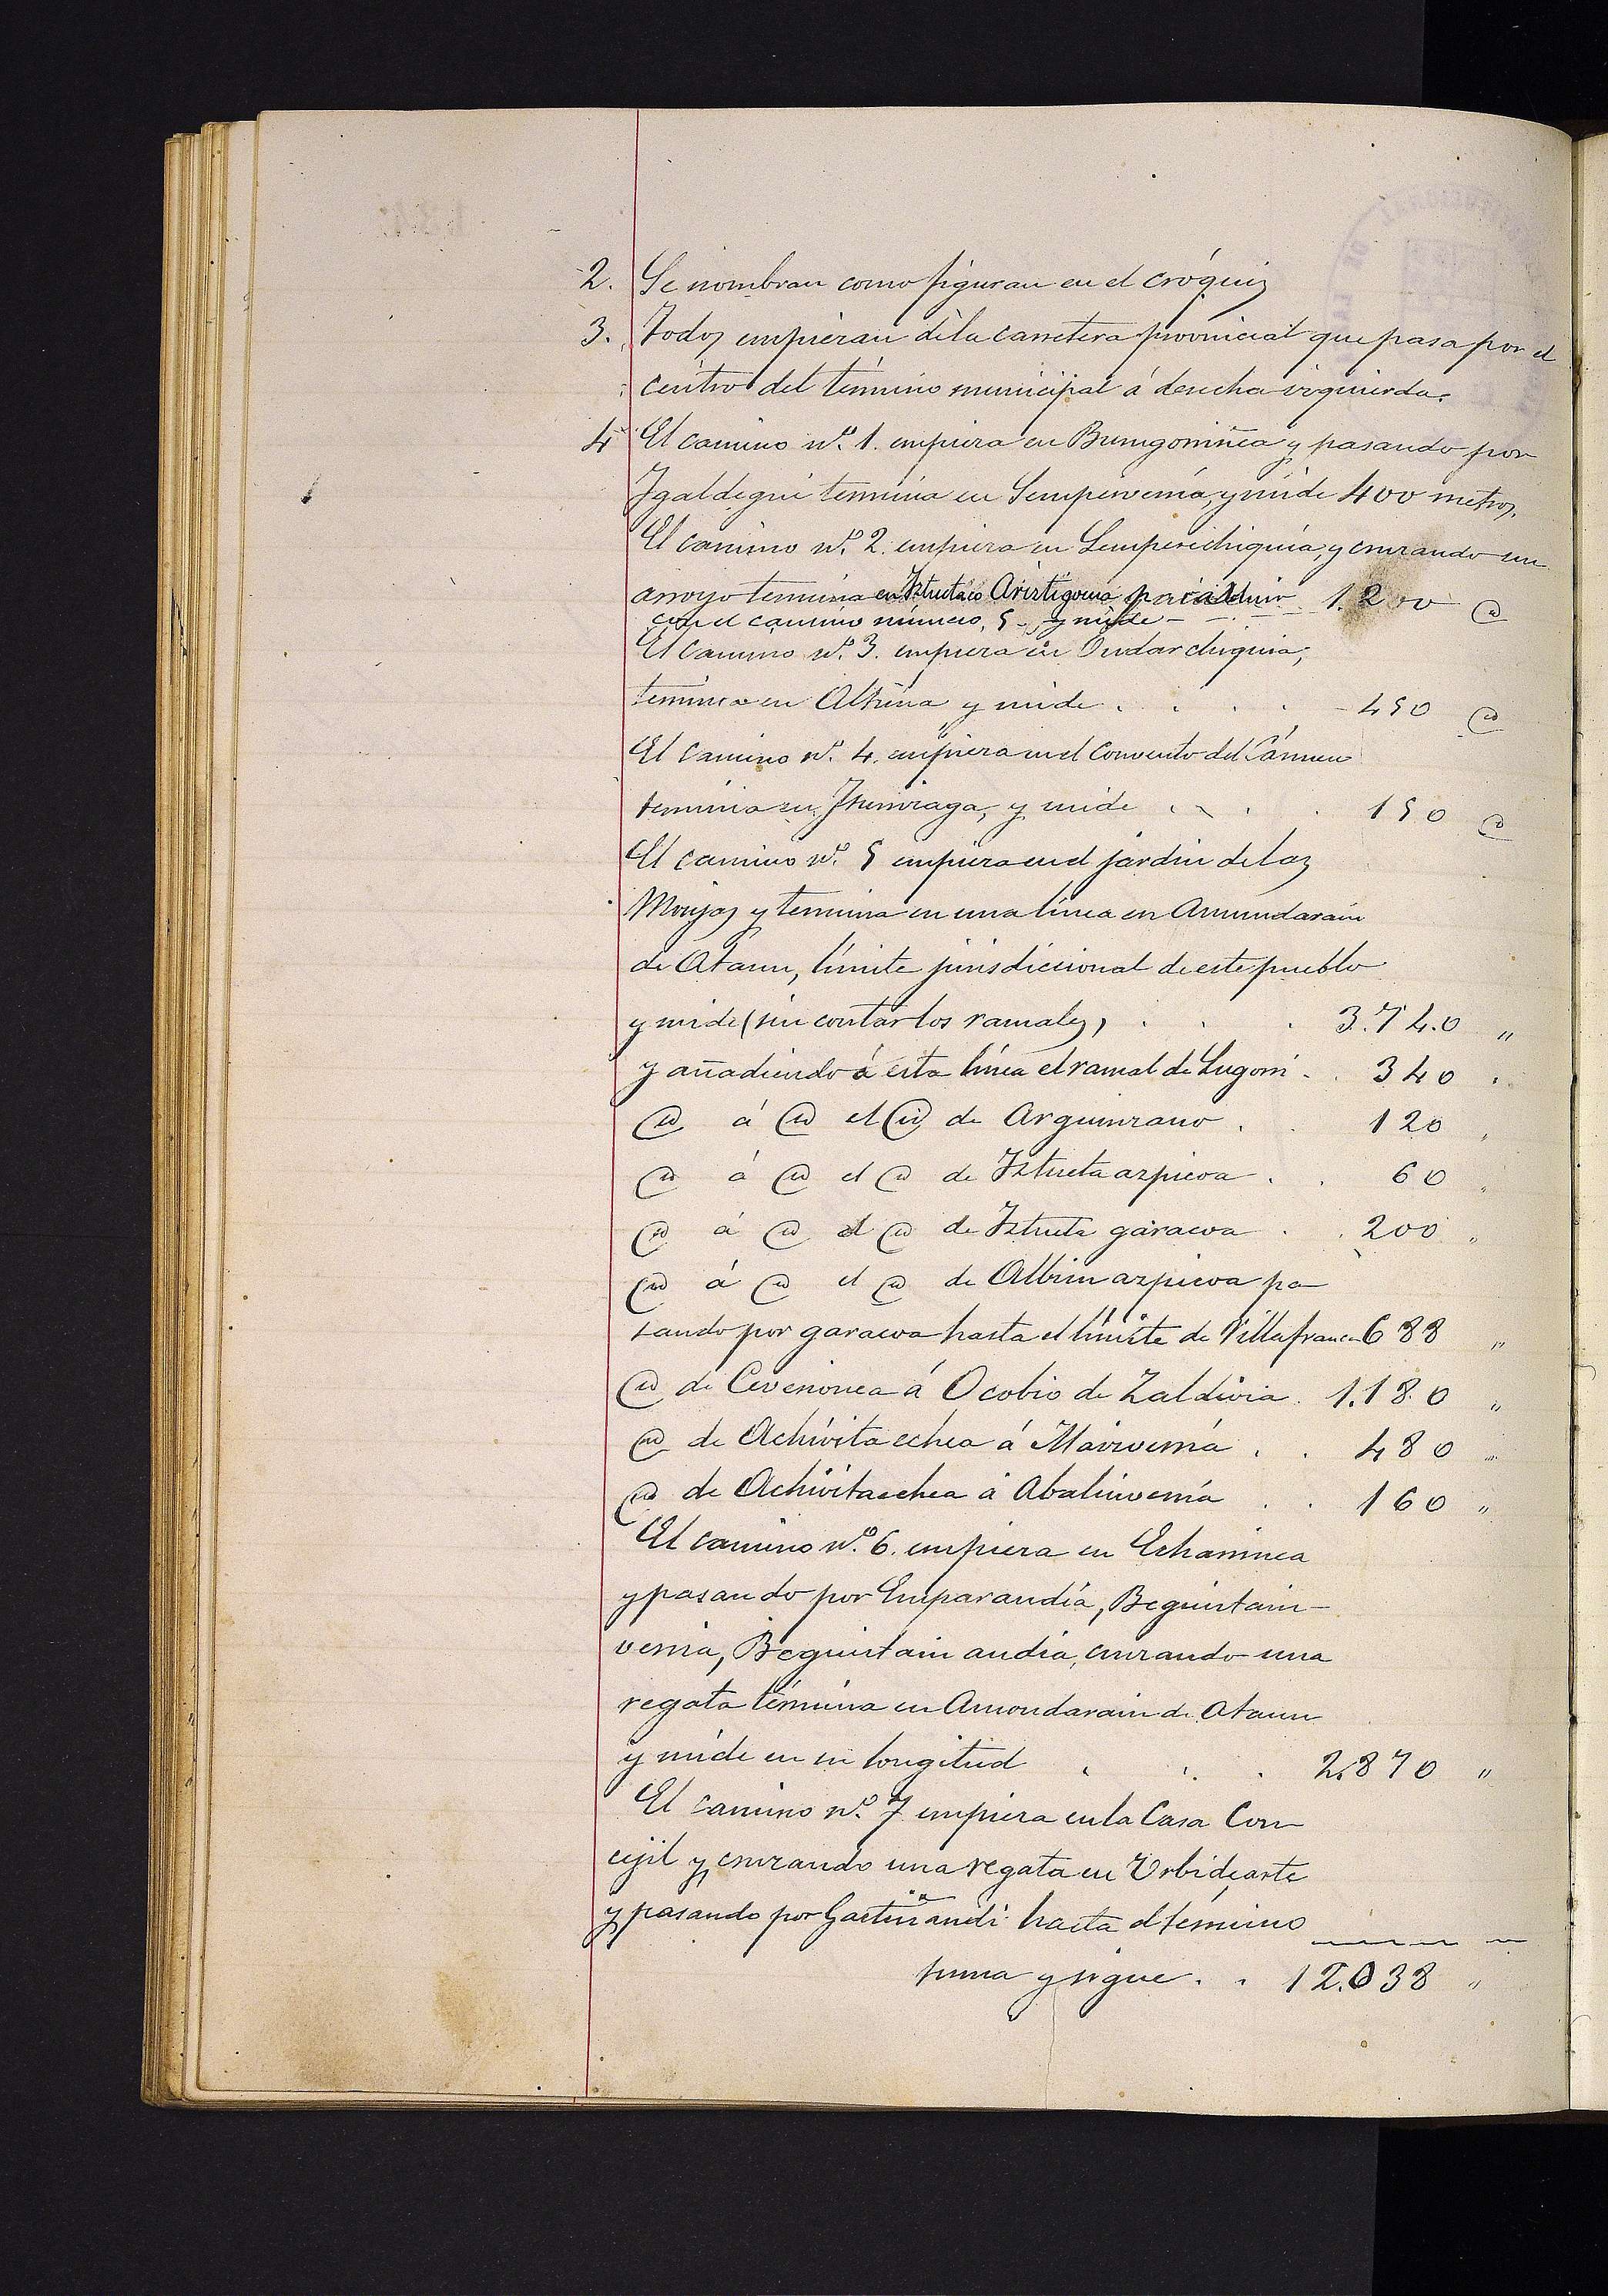 2. Se nombran como figuran en el cróquiz
3. Todos empiezan de la carretera provincial que pasa por el
centro del término municipal á derecha izquierda.
4 El camino nº. 1. empieza en y pasando por
Igaldegui termina en y mide 400 metros.
El camino nº. 2. empieza en y cruzando un
arroyo termina en 1.200 @
con el camino número, 5 - y mide -
El Camino nº. 3. empieza en Ondarchiquia,
termina en y mide . . . . 450 @
El Camino nº. 4. empieza en el Convento del Cármen
termina en y mide . . . 150 @
El camino nº. 5 empieza en el jardin de las
Monjas y termina en una línea en Amundarain
de Ataun, límite jurisdiccional de este pueblo
y mide (sin contar los ramales) . . . 3.740 "
y añadiendo á esta línea el ramal de . . 340 "
@ á @ el @ de . . 120 "
@ á @ el @ de Iztueta azpicoa . . 60 "
@ á @ el @ de Iztueta garacoa . . 200 "
@ á @ el @ de azpicoa pa-
sando por garacoa hasta el límite de Villafranca 688 "
@ de á Ocobio de Zaldivia . 1.180 "
@ de á . . 480 "
@ de á . . 160 "
El camino nº. 6. empieza en
y pasando por Emparandia, Beguirtain-
verria, Beguirtain andia, cruzando una
regata términa en Amondarain de Ataun
y mide en su longitud . . . 2.870 "
El camino nº. 7 empieza en la Casa Con-
cejil y cruzando una regata en Urbidearte
y pasando por hasta el término
suma y sigue . . 12.038 "